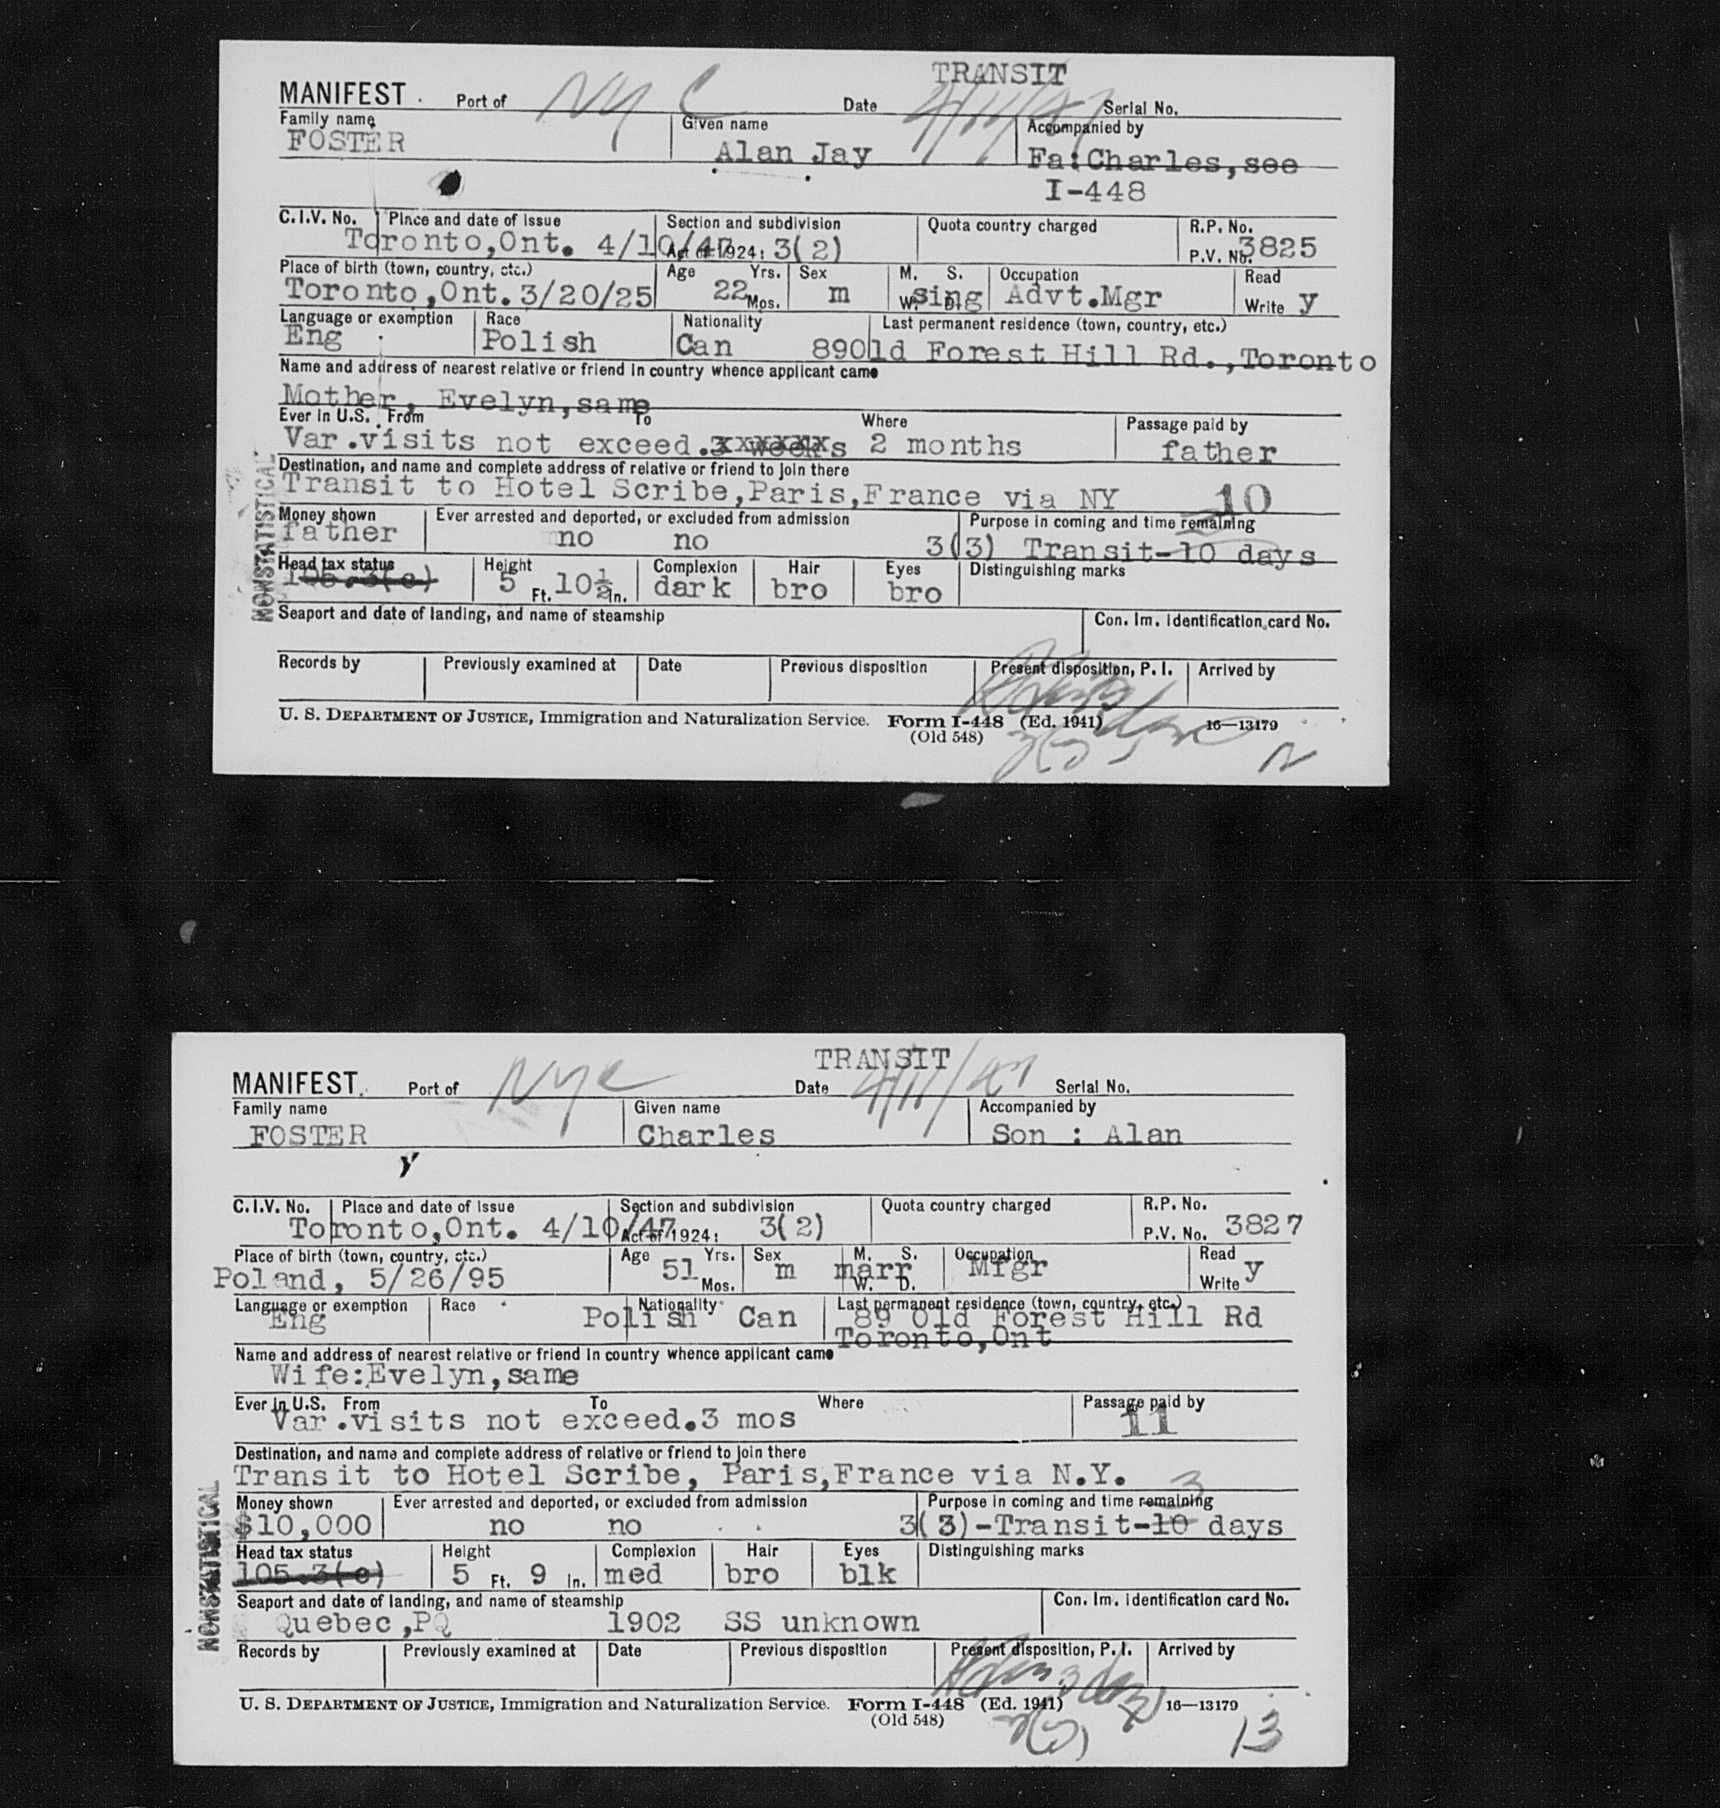 TRANSIT
MANIFEST Port of NYC Date 4/11/47 Serial No.
Family name Given name Accompanied by
FOSTER Alan Jay Fa:Charles,see
I-448
C.I.V. No. Place and date of issue Section and subdivision Quota country charged R.P. No.
Toronto,Ont. 4/10/47 Act of 1924: 3(2) P.V. No. 3825
Place of birth (town, country, etc.) Age Yrs. Sex M. S. Occupation Read
Toronto,Ont.3/20/25 22 Mos. m W. D. sing Advt.Mgr Write y
Language or exemption Race Nationality Last permanent residence (town, country, etc.)
Eng Polish Can 89Old Forest Hill Rd.,Toronto
Name and address of nearest relative or friend in country whence applicant came
Mother, Evelyn,same
Ever in U.S. From To Where Passage paid by
Var.visits not exceed.3 weeks 2 months father
Destination, and name and complete address of relative or friend to join there
Transit to Hotel Scribe,Paris,France via NY 10
Money shown Ever arrested and deported, or excluded from admission Purpose in coming and time remaining
father no no 3(3) Transit-10 days
Head tax status Height Complexion Hair Eyes Distinguishing marks
105.3(e) 5 Ft. 10½ In. dark bro bro
NONSTATISTICAL
Seaport and date of landing, and name of steamship Con. Im. identification card No.
Records by Previously examined at Date Previous disposition Present disposition, P. I. Arrived by
U. S. DEPARTMENT OF JUSTICE, Immigration and Naturalization Service. Form I-448 (Ed. 1941) 16—13179
(Old 548)
TRANSIT
MANIFEST Port of NYC Date 4/11/47 Serial No.
Family name Given name Accompanied by
FOSTER Charles Son : Alan
C.I.V. No. Place and date of issue Section and subdivision Quota country charged R.P. No.
Toronto,Ont. 4/10/47 Act of 1924: 3(2) P.V. No. 3827
Place of birth (town, country, etc.) Age Yrs. Sex M. S. Occupation Read
Poland, 5/26/95 51 Mos. m marr W. D. Mfgr Write y
Language or exemption Race Nationality Last permanent residence (town, country, etc.)
Eng Polish Can 89 Old Forest Hill Rd
Toronto,Ont
Name and address of nearest relative or friend in country whence applicant came
Wife:Evelyn,same
Ever in U.S. From To Where Passage paid by
Var.visits not exceed.3 mos 11
Destination, and name and complete address of relative or friend to join there
Transit to Hotel Scribe, Paris,France via N.Y. 3
Money shown Ever arrested and deported, or excluded from admission Purpose in coming and time remaining
$10,000 no no 3(3)-Transit-10 days
Head tax status Height Complexion Hair Eyes Distinguishing marks
105.3(e) 5 Ft. 9 In. med bro blk
NONSTATISTICAL
Seaport and date of landing, and name of steamship Con. Im. identification card No.
Quebec,PQ 1902 SS unknown
Records by Previously examined at Date Previous disposition Present disposition, P. I. Arrived by
U. S. DEPARTMENT OF JUSTICE, Immigration and Naturalization Service. Form I-448 (Ed. 1941) 16—13179
(Old 548)
13